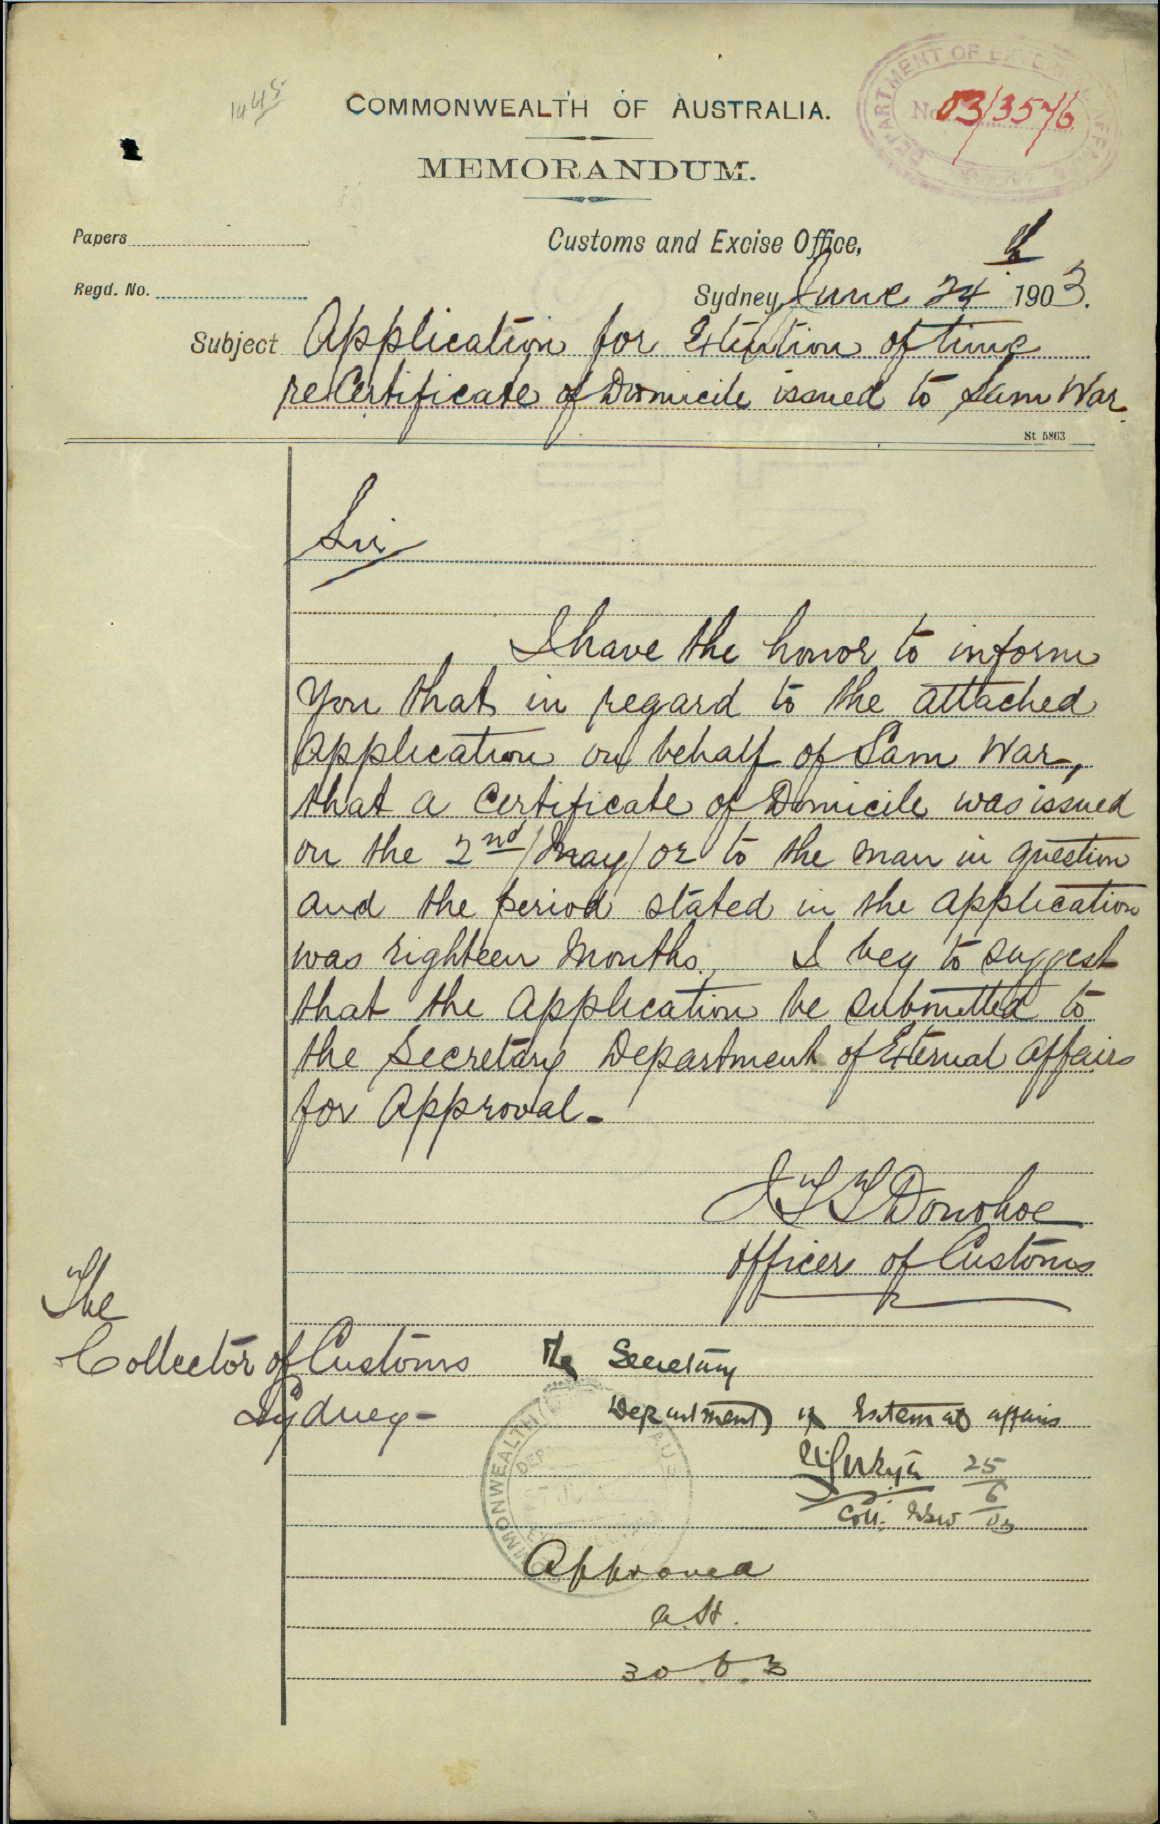 1445
COMMONWEALTH OF AUSTRALIA.
DEPARTMENT OF EXTERNAL AFFAIRS
No. 03/3576
MEMORANDUM.
Papers
Customs and Excise Office,
Regd. No.
Sydney, June 24th 1903.
Subject Application for Extention of time
re Certificate of Domicile issued to Sam War.
St 5863
Sir
I have the honor to inform
you that in regard to the attached
application on behalf of Sam War,
that a Certificate of Domicile was issued
on the 2nd/May/02 to the man in question
and the period stated in the application
was eighteen months. I beg to suggest
that the application be submitted to
the Secretary Department of External Affairs
for Approval.
J T T Donohoe
Officer of Customs
The
Collector of Customs
Sydney-
The Secretary
Department of External Affairs
25
6
03
Coll. NSW
COMMONWEALTH
Approved
a.H.
30.6.3